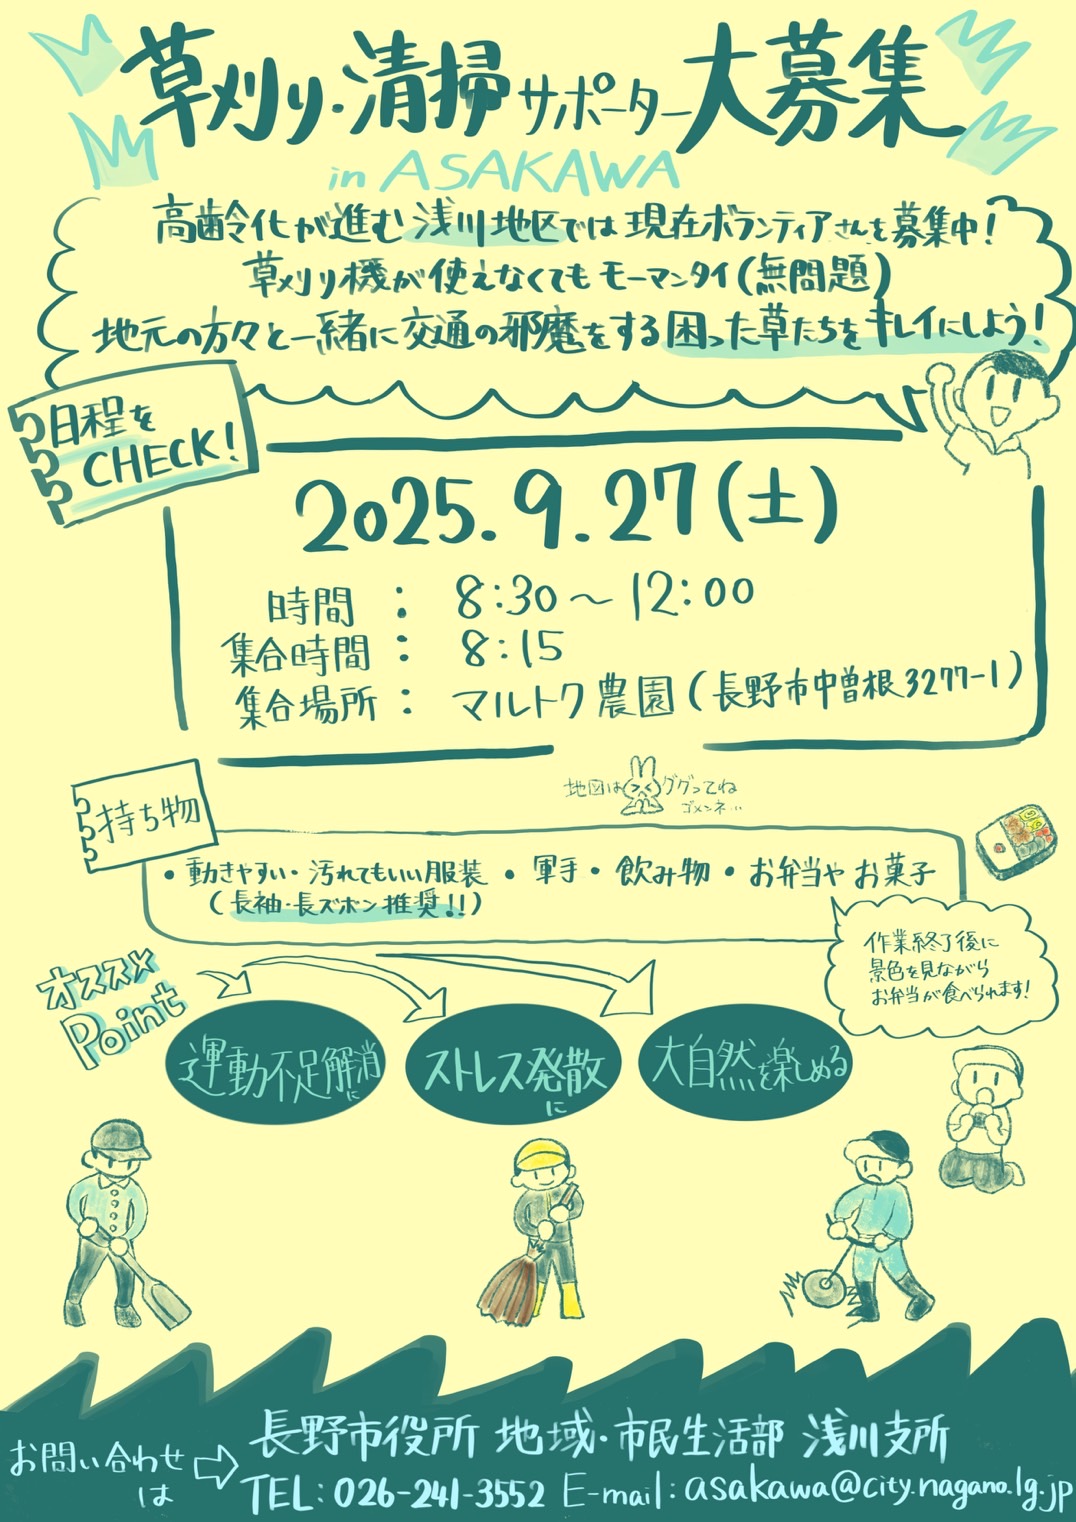 草刈り・清掃サポーター大募集
in ASAKAWA
高齢化が進む浅川地区では現在ボランティアさんを募集中!
草刈り機が使えなくてもモーマンタイ(無問題)
地元の方々と一緒に交通の邪魔をする困った草たちをキレイにしよう!
日程を
CHECK!
2025.9.27(土)
時間 : 8:30〜12:00
集合時間 : 8:15
集合場所 : マルトク農園(長野市中曽根3277-1)
地図はググってね
ゴメンネ…
持ち物
・動きやすい・汚れてもいい服装 ・軍手・飲み物・お弁当やお菓子
(長袖・長ズボン推奨!!)
作業終了後に
景色を見ながら
お弁当が食べられます!
オススメ
Point
運動不足解消に
ストレス発散に
大自然を楽しめる
お問い合わせは
長野市役所 地域・市民生活部 浅川支所
TEL:026-241-3552 E-mail:asakawa@city.nagano.lg.jp